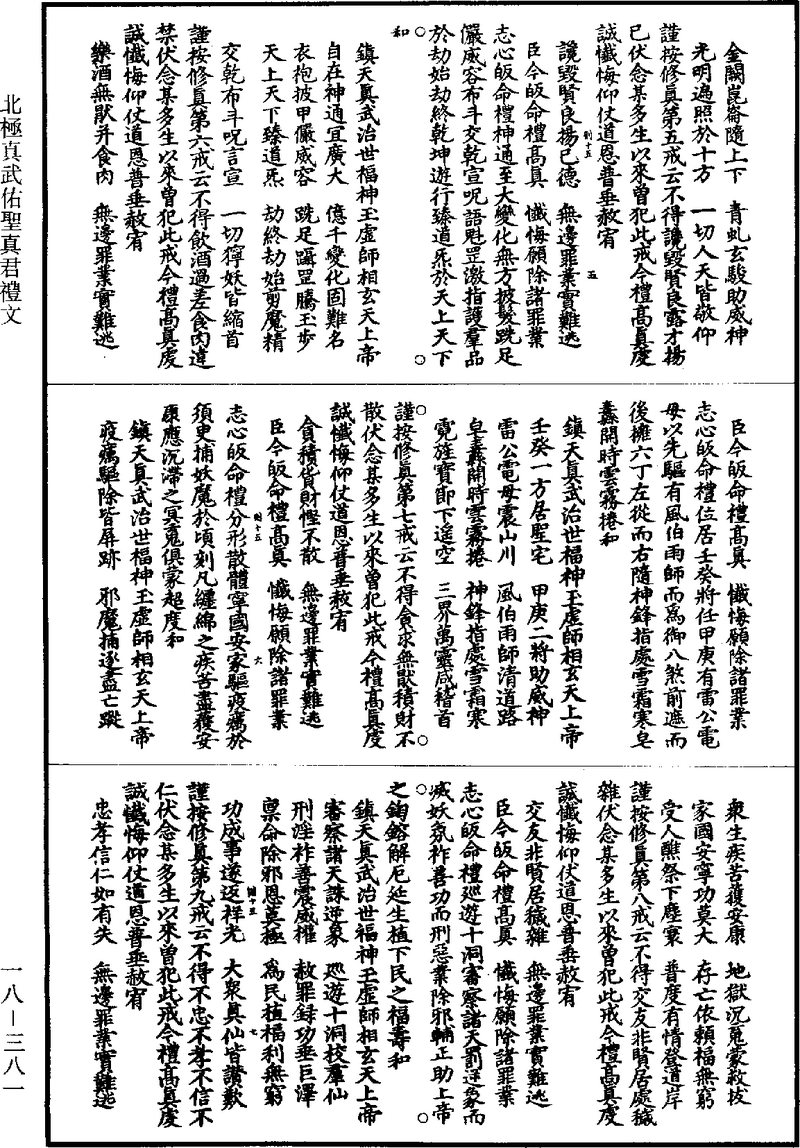 金闕崑崙隨上下　青虬玄駿助威神
光明遍照於十方　一切人天皆敬仰
謹按修眞第五戒云不得譏毀賢良露才揚
已伏念某多生以來曾犯此戒今禮髙眞虔
誠懺悔仰仗道恩普垂赦宥
譏毀賢良揚已德　無邊罪業實難逃
臣今皈命禮髙眞　懺悔願除諸罪業
志心皈命禮神通至大變化無方披髮跣足
儼威容布斗交乾宣呪語魁罡激指護羣品
於劫始劫終乾坤遊行臻道炁於天上天下
和
鎮天眞武治世福神玉虛師相玄天上帝
自在神通宜廣大　億千變化固難名
衣袍披甲儼威容　跣足躡罡騰玉步
天上天下臻道炁　劫終劫始剪魔精
交乾布斗呪言宣　一切獰妖皆縮首
謹按修眞第六戒云不得飲酒過差食肉違
禁伏念某多生以來曾犯此戒今禮髙眞虔
誠懺悔仰仗道恩普垂赦宥
樂酒無猒幷食肉　無邊罪業實難逃
臣今皈命禮髙眞　懺悔願除諸罪業
志心皈命禮位居壬癸將任甲庚有雷公電
母以先驅有風伯雨師而爲御八煞前遮而
後擁六丁左從而右隨神鋒指處雪霜寒皂
纛開時雲霧捲和
鎮天眞武治世福神玉虛師相玄天上帝
壬癸一方居聖宅　甲庚二將助威神
雷公電母震山川　風伯雨師清道路
皂纛開時雲霧捲　神鋒指處雪霜寒
霓旌寶節下遥空　三界萬靈咸稽首
謹按修眞第七戒云不得貪求無猒積財不
散伏念某多生以來曾犯此戒今禮髙眞虔
誠懺悔仰仗道恩普垂赦宥
貪積貨財慳不散　無邊罪業實難逃
臣今皈命禮髙眞　懺悔願除諸罪業
志心皈命禮分形散體寧國安家驅疫癘於
須臾捕妖魔於頃刻凡纏綿之疾苦盡獲安
康應沉滯之冥䰟俱蒙超度和
鎮天眞武治世福神玉虛師相玄天上帝
疫癘驅除皆屏跡　邪魔捕逐盡亡蹤
衆生疾苦獲安康　地獄沉䰟蒙救拔
家國安寧功莫大　存亡依賴福無窮
受人醮祭下塵寰　普度有情登道岸
謹按修眞第八戒云不得交友非賢居處穢
雜伏念某多生以來曾犯此戒今禮髙眞虔
誠懺悔仰仗道恩普垂赦宥
交友非賢居穢雜　無邊罪業實難逃
臣今皈命禮髙眞　懺悔願除諸罪業
志心皈命禮巡遊十洞審察諸天罰逆衆而
滅妖氛祚善功而刑惡業除邪輔正助上帝
之鈞鎔解厄延生植下民之福壽和
鎮天眞武治世福神玉虛師相玄天上帝
審察諸天誅逆衆　巡遊十洞校羣仙
刑淫祚善震威權　赦罪録功垂巨澤
禀命除邪恩莫極　爲民植福利無窮
功成事遂返祥光　大衆眞仙皆讚歎
謹按修眞第九戒云不得不忠不孝不信不
仁伏念某多生以來曾犯此戒今禮髙眞虔
誠懺悔仰仗道恩普垂赦宥
忠孝信仁如有失　無邊罪業實難逃
北極真武佑聖真君禮文
一八－三八一